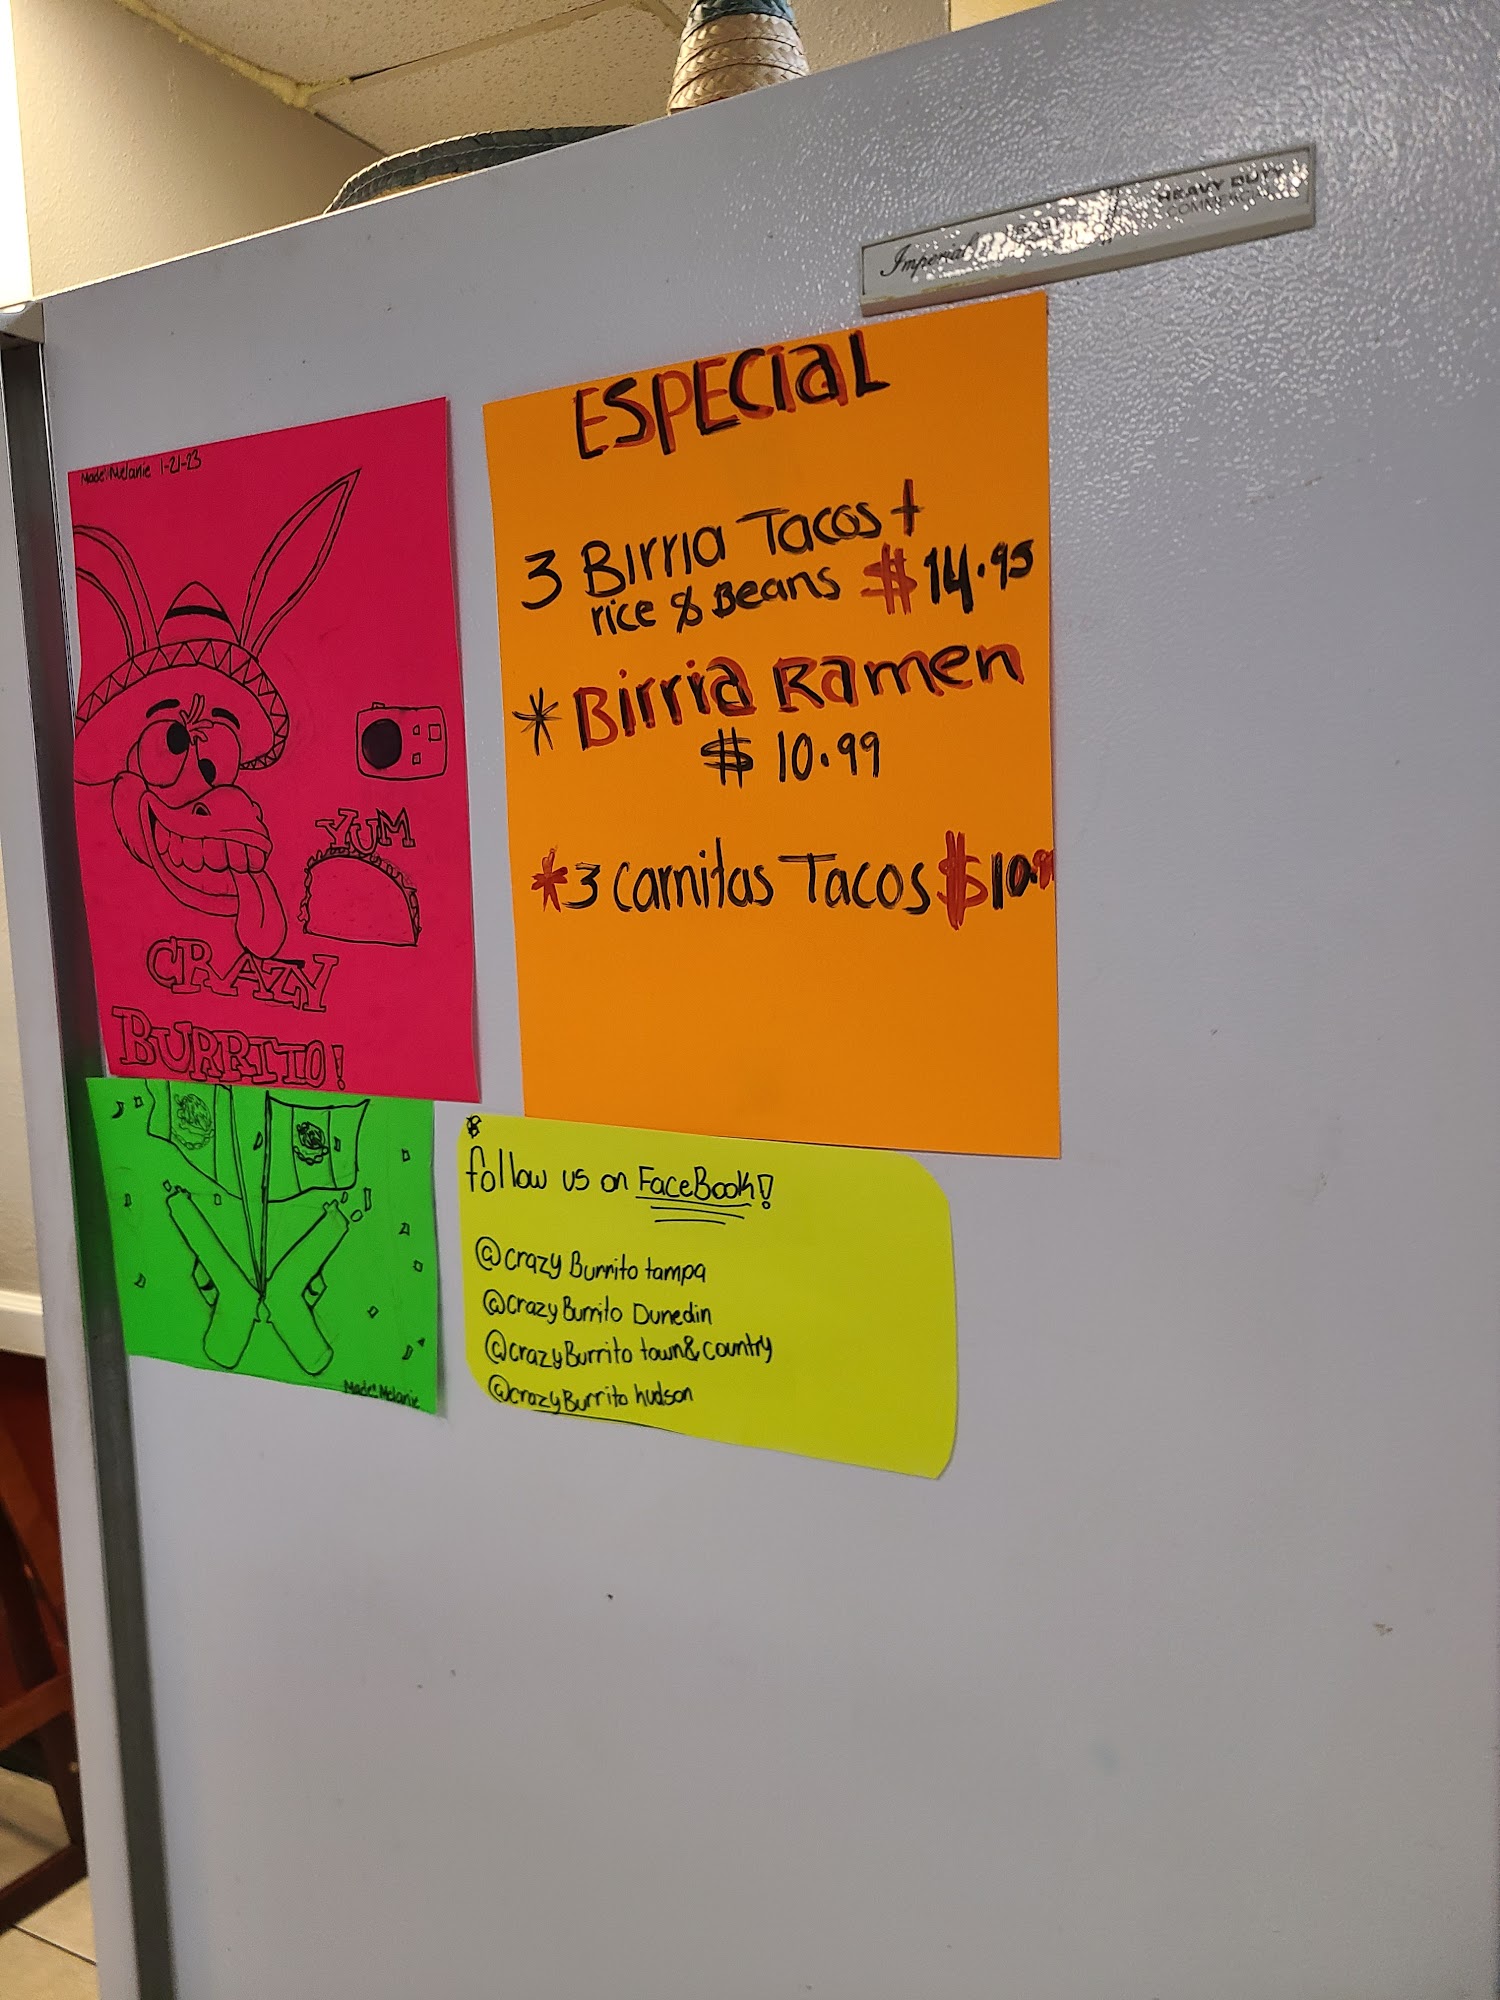 Imperial
HEAVY DUTY
COMMERCIAL
ESPECIAL
3 Birria Tacos +
rice & Beans $14.95
* Birria Ramen
$ 10.99
*3 Carnitas Tacos $10.9
Made: Melanie 1-21-23
YUM
CRAZY
BURRITO!
Made: Melanie
follow us on FaceBook!
@crazy Burrito tampa
@crazy Burrito Dunedin
@crazy Burrito town&country
@crazy Burrito hudson